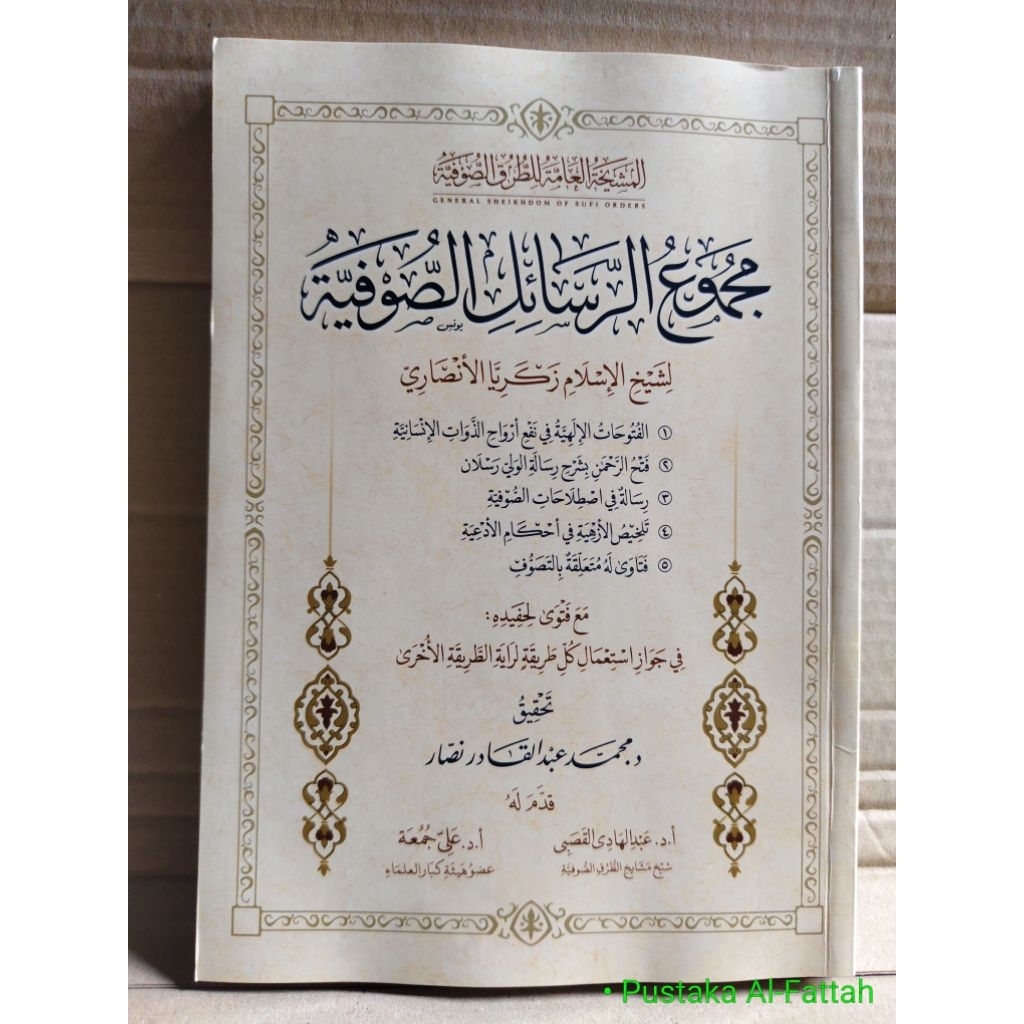 المَشْيَخَةُ العَامَّةُ لِلطُّرُقِ الصُّوفِيَّةِ
GENERAL SHEIKHDOM OF SUFI ORDERS
مَجْمُوعُ الرَّسَائِلِ الصُّوفِيَّةِ
يونس
لِشَيْخِ الإِسْلَامِ زَكَرِيَّا الأَنْصَارِيِّ
١ الفُتُوحَاتُ الإِلَهِيَّةُ فِي نَفْعِ أَرْوَاحِ الذَّوَاتِ الإِنْسَانِيَّةِ
٢ فَتْحُ الرَّحْمَنِ بِشَرْحِ رِسَالَةِ الوَلِيِّ رَسْلَان
٣ رِسَالَةٌ فِي اصْطِلَاحَاتِ الصُّوفِيَّةِ
٤ تَلْخِيصُ الأَزْهِيَةِ فِي أَحْكَامِ الأَدْعِيَةِ
٥ فَتَاوَى لَهُ مُتَعَلِّقَةٌ بِالتَّصَوُّفِ
مَعَ فَتْوَى لِحَفِيدِهِ:
فِي جَوَازِ اسْتِعْمَالِ كُلِّ طَرِيقَةٍ لِرَايَةِ الطَّرِيقَةِ الأُخْرَى
تَحْقِيقُ
د. محمَّد عبد القادر نصّار
قَدَّمَ لَهُ
أ.د. عَبْدُ الهَادِي القَصَبِي
شيخ مشايخ الطرق الصوفية
أ.د. عَلِيّ جُمُعَة
عضو هيئة كبار العلماء
• Pustaka Al-Fattah